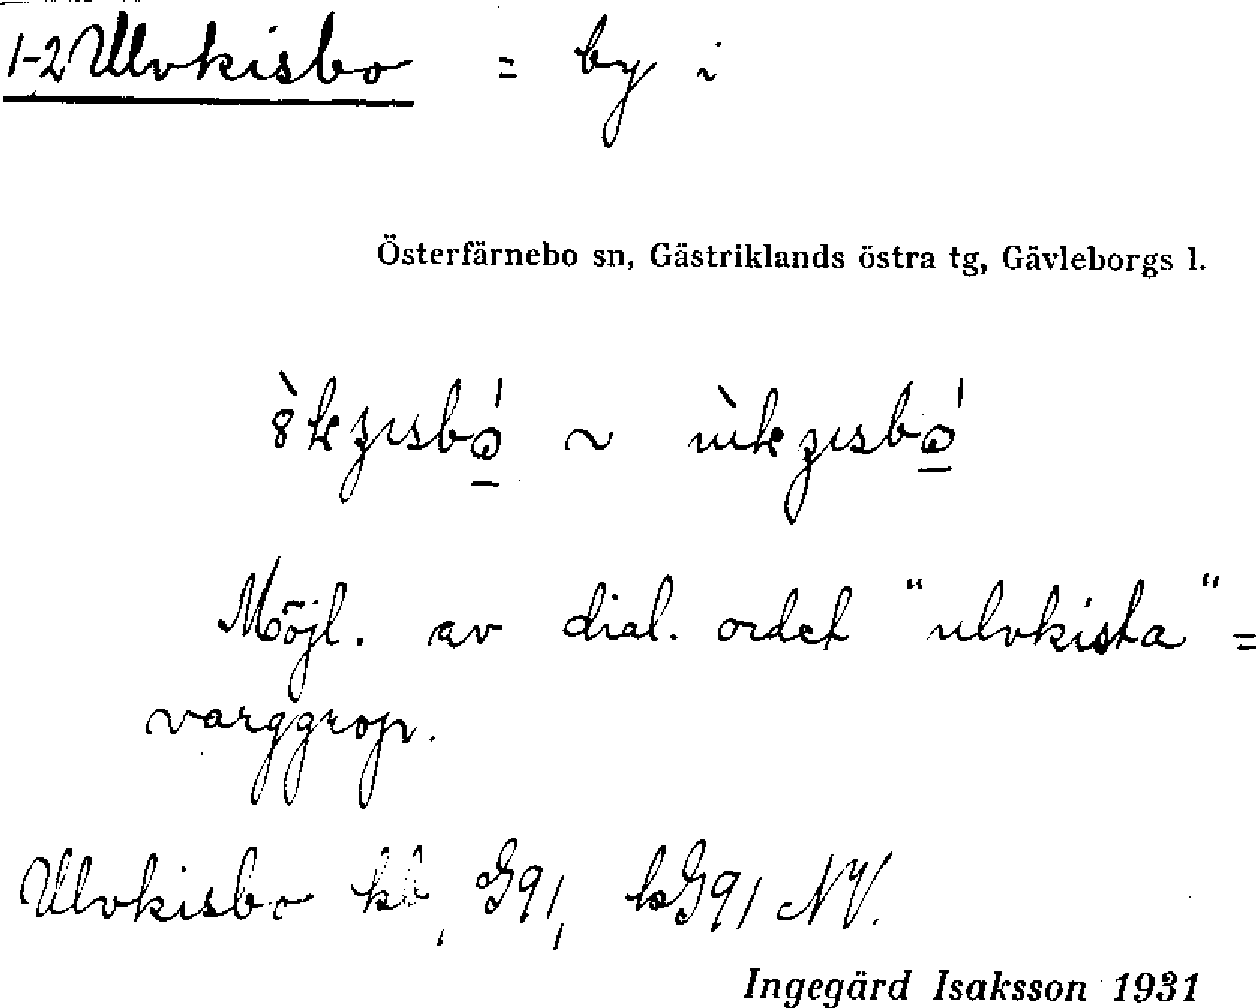 1-2 Ulvkisbo = by i
Österfärnebo sn, Gästriklands östra tg, Gävleborgs l.
~
Möjl. av dial. ordet "ulvkista" =
varggrop.
Ulvkisbo kb, G91, kG91 NV.
Ingegärd Isaksson 1931